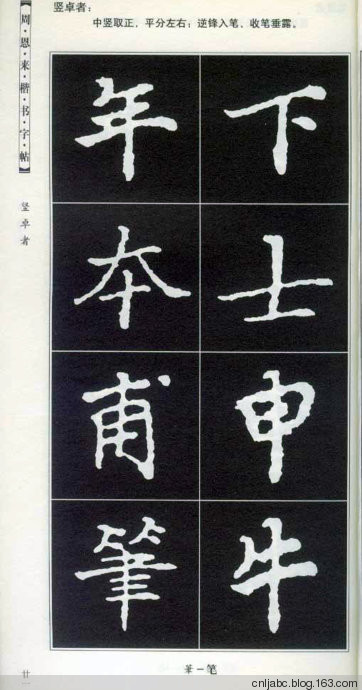 竖卓者：
中竖取正，平分左右；逆锋入笔、收笔垂露。
【周·恩·来·楷·书·字·帖】
竖卓者
下
士
申
牛
年
本
甫
筆
廿
筆－笔
cnljabc.blog.163.com